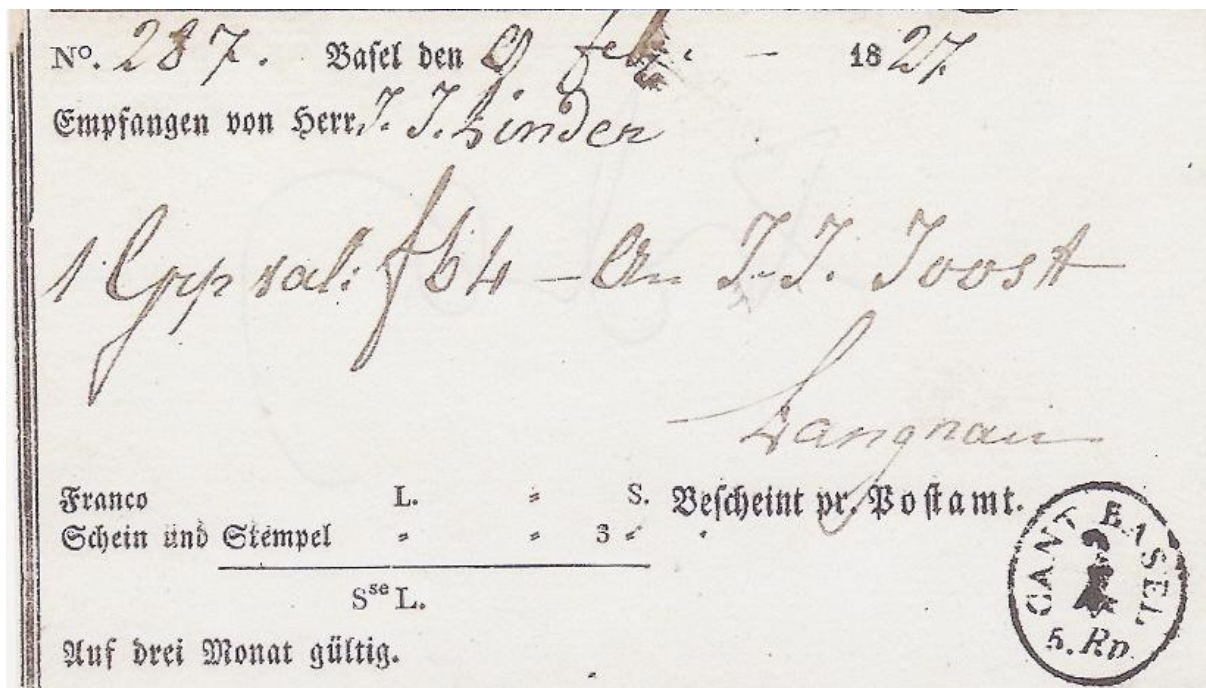 No. 287. Basel den 9. feb. – 1827.
Empfangen von Herr. J. J. Linder
1 Grp val: f 64 – An J. J. Joost
Langnau
Franco L. = S. Bescheint pr. Postamt.
Schein und Stempel = = 3 =
Sse L.
Auf drei Monat gültig.
CANT BASEL
5. Rp